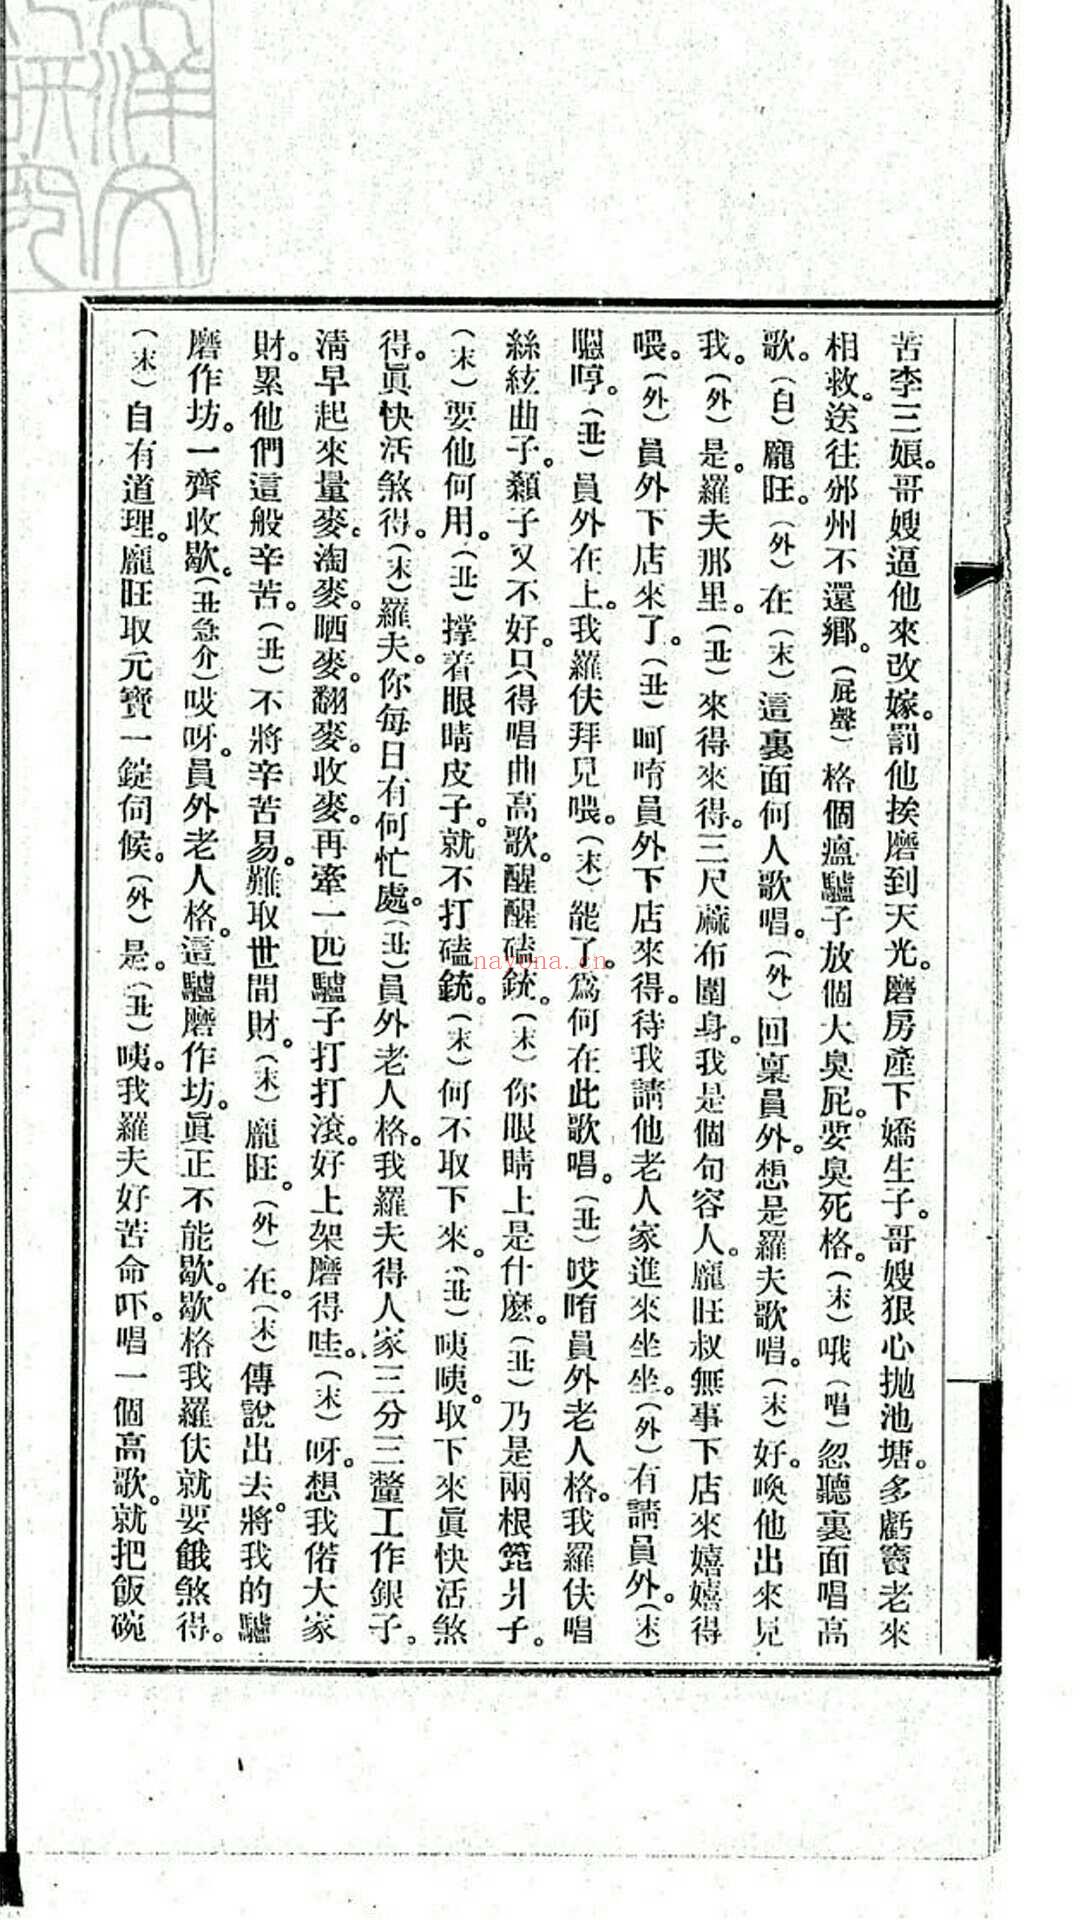 苦李三娘。哥嫂逼他來改嫁。罰他挨磨到天光。磨房產下嬌生子。哥嫂狠心拋池塘。多虧竇老來
相救。送往邠州不還鄉。（屁聲）格個瘟驢子放個大臭屁。要臭死格。（末）哦（唱）忽聽裏面唱高
歌。（自）龐旺。（外）在（末）這裏面何人歌唱。（外）回稟員外。想是羅夫歌唱。（末）好。喚他出來見
我。（外）是。羅夫那里。（丑）來得來得。三尺蔴布圍身。我是個句容人。龐旺叔無事下店來嬉嬉得
喂。（外）員外下店來了。（丑）呵唷員外下店來得。待我請他老人家進來坐坐。（外）有請員外。（末）
嗯哼。（丑）員外在上。我羅伕拜見喂。（末）罷了。爲何在此歌唱。（丑）哎唷員外老人格。我羅伕唱
絲絃曲子。顙子又不好。只得唱曲高歌。醒醒磕銃。（末）你眼睛上是什麽。（丑）乃是兩根箆爿子。
（末）要他何用。（丑）撑着眼睛皮子。就不打磕銃。（末）何不取下來。（丑）咦咦。取下來眞快活煞
得。眞快活煞得。（末）羅夫。你每日有何忙處。（丑）員外老人格。我羅夫得人家三分三釐工作銀子。
淸早起來量麥。淘麥。晒麥。翻麥。收麥。再牽一匹驢子打打滾。好上架磨得哇。（末）呀。想我偌大家
財。累他們這般辛苦。（丑）不將辛苦易。難取世間財。（末）龐旺。（外）在。（末）傳說出去。將我的驢
磨作坊。一齊收歇。（丑急介）哎呀。員外老人格。這驢磨作坊。眞正不能歇。歇格我羅伕就要餓煞得。
（末）自有道理。龐旺取元寶一錠伺候。（外）是。（丑）咦。我羅夫好苦命吓。唱一個高歌。就把飯碗
nayona.cn